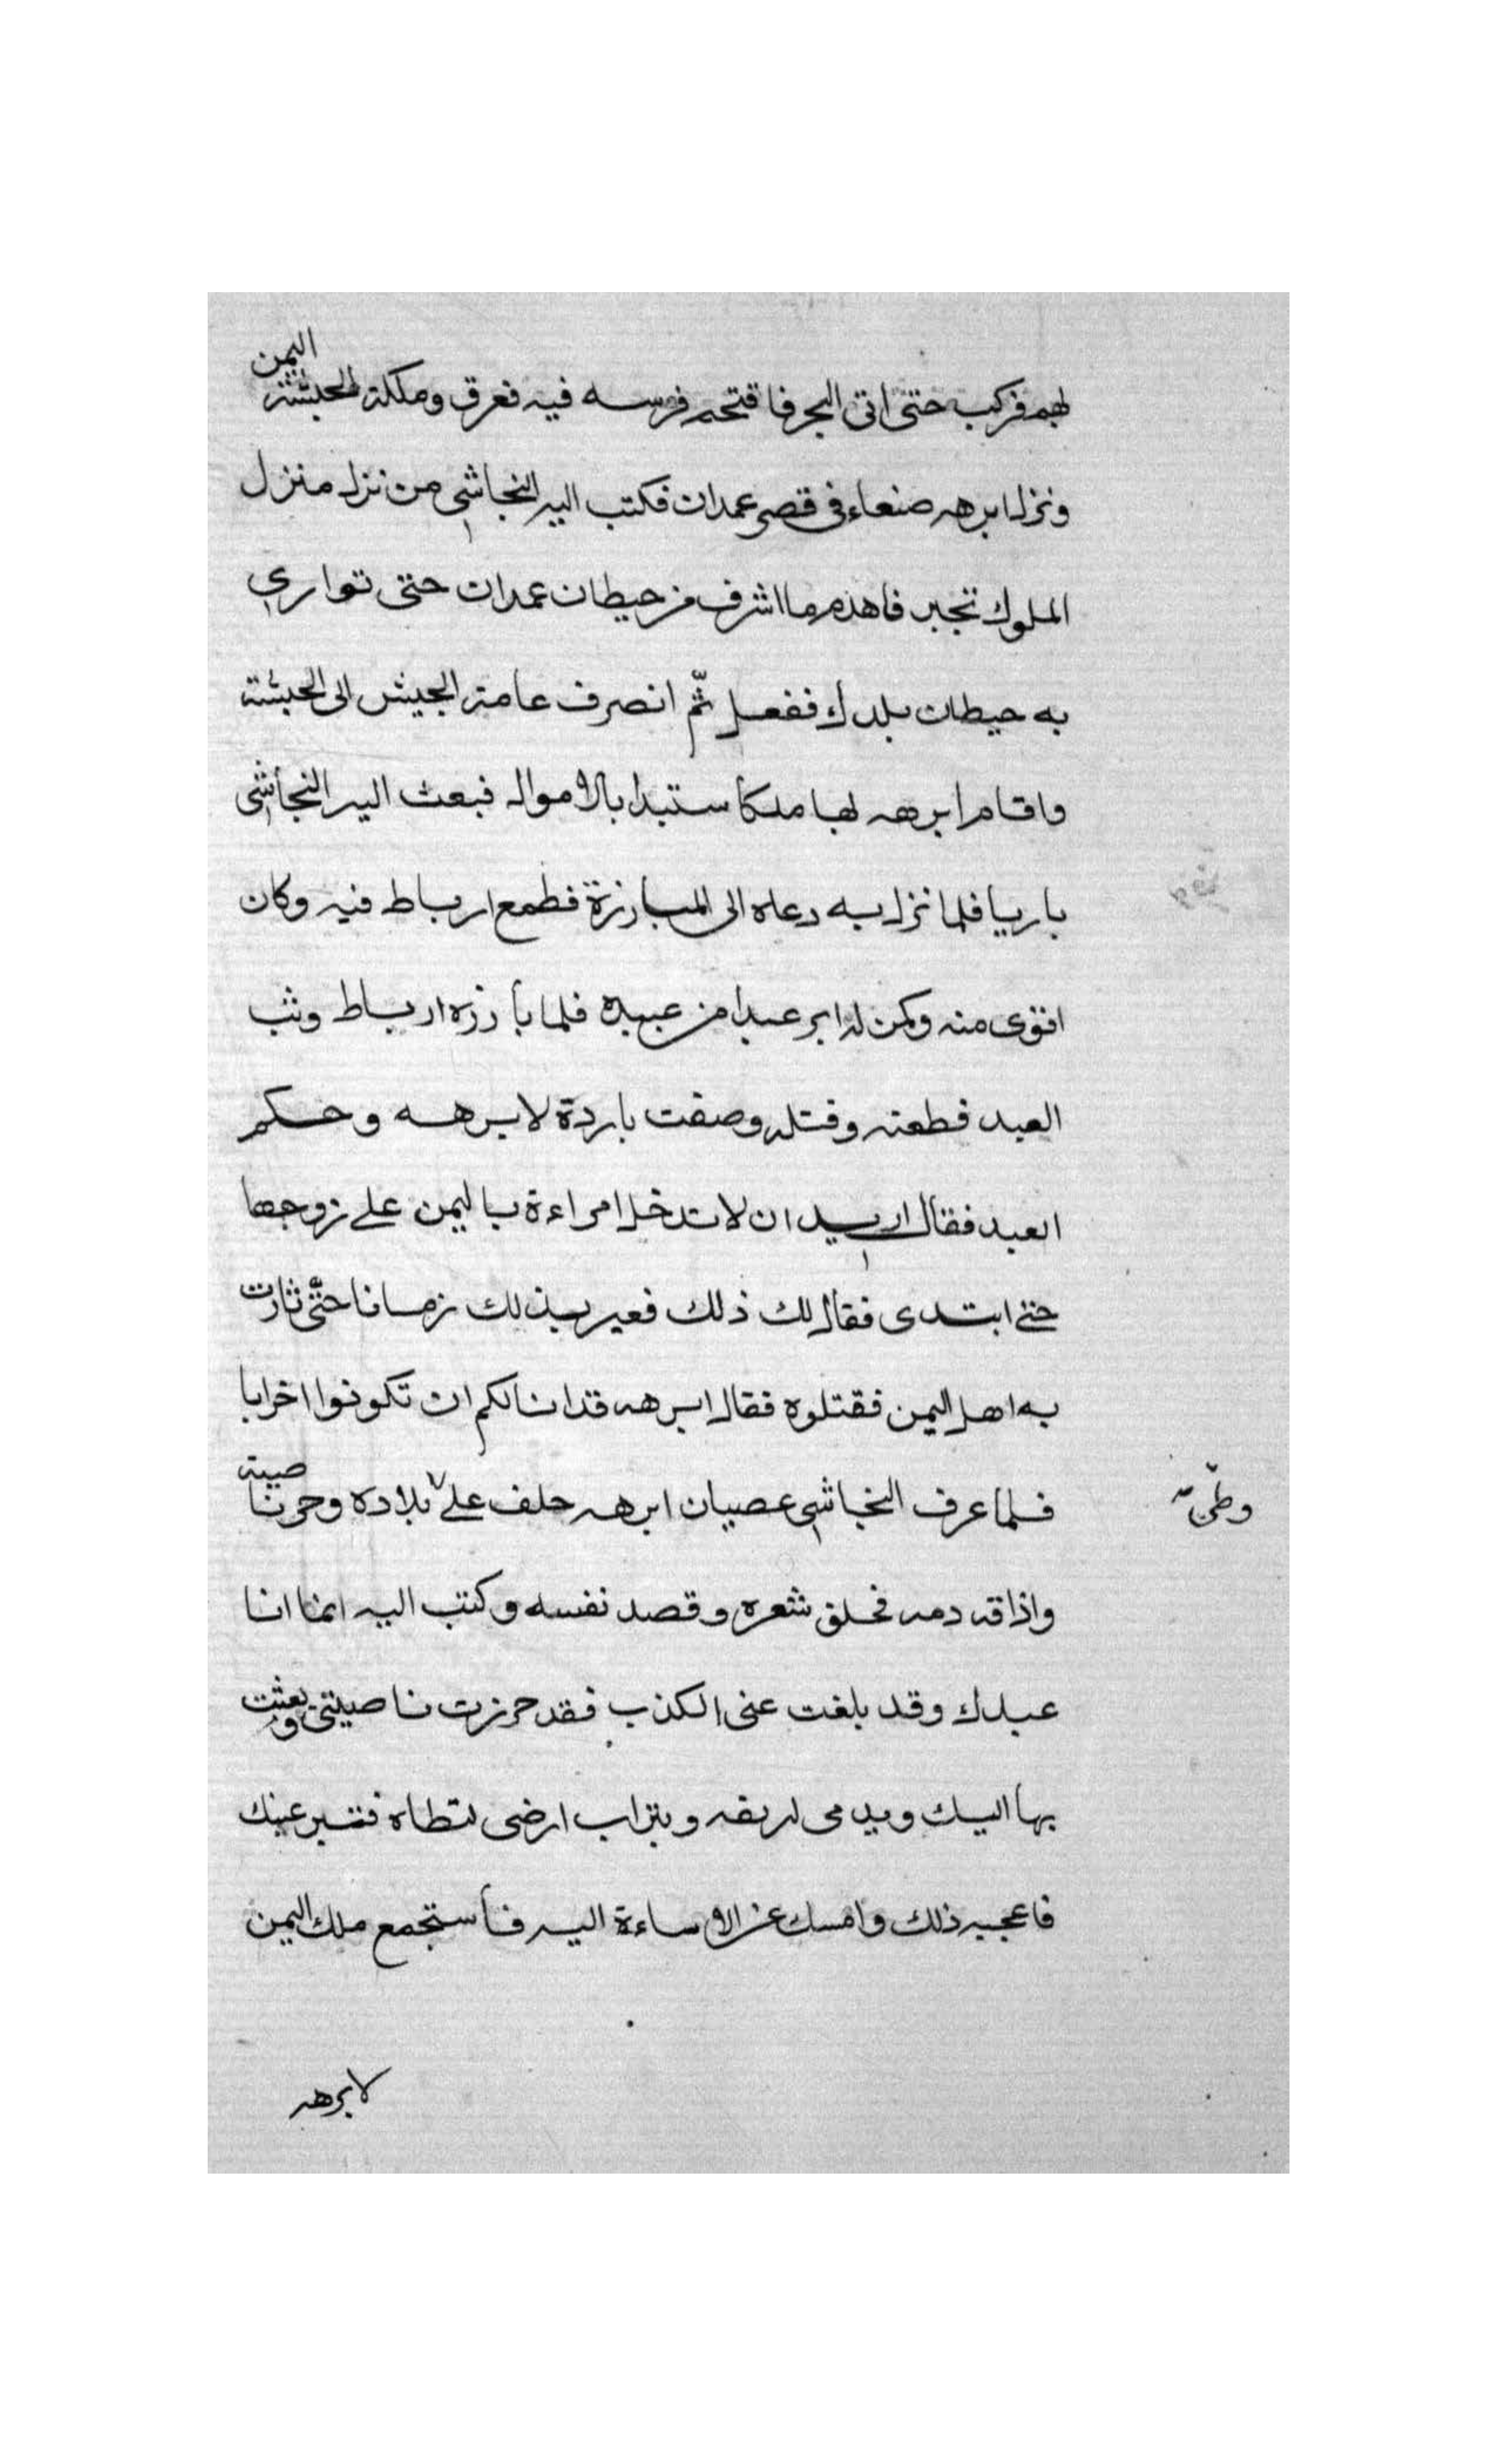 لهم فركب حتى اتى البحر فاقتحم فرسه فيه فغرق وملكة الحبشة اليمن
ونزل ابرهه صنعاء فى قصر عمدان فكتب اليه النجاشي من نزل منزل
الملوك تجبر فاهدم ما اشرف من حيطان عمدان حتى تواري
به حيطان بلدك ففعل ثم انصرف عامة الجيش الى الحبشة
واقام ابرهه لها ملكا ستبدا بالاموال فبعث اليه النجاشي
بارسا فلما نزل به دعاه الى المبارزة فطمع ارباط فيه وكان
اقوى منه وكمن له ابر عبدا من عبيده فلما بأرزه ارباط وثب
العبد فطعنه وقتله وصفت باردة لابرهه وحكم
العبد فقال اريد ان لا تدخل امراءة باليمن على زوجها
حتى ابتدى فقال لك ذلك فعير بذلك زمانا حتّى ثارت
به اهل اليمن فقتلوه فقال ابرهه قد انالكم ان تكونوا اخرابا
فلما عرف النجاشي عصيان ابرهه حلف على بلاده وحز ناصيته
وطئ
واذاقه دمه فحلق شعره وقصد نفسه وكتب اليه انما انا
عبدك وقد بلغت عنى الكذب فقد حرزت ناصيتى وبعثت
بها اليك وبدمى لريقه وبتراب ارضى لتطاه فتبر عينك
فاعجبه ذلك وامسك عن الاساءة اليه فأستجمع ملك اليمن
لابرهه